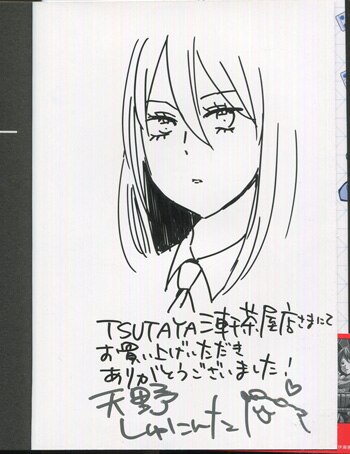 TSUTAYA三軒茶屋店さまにて
お買い上げいただき
ありがとうございました!
天野
しゅにんた